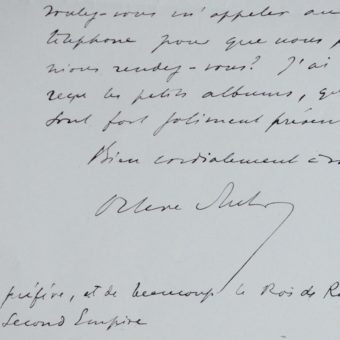 voulez-vous m'appeler au
téléphone pour que nous p
nions rendez-vous? J'ai
reçu les petits albums, qu
sont fort joliment présen
Bien cordialement à v
Octave Aubry
préfère, et de beaucoup le Roi de Ro
Second Empire